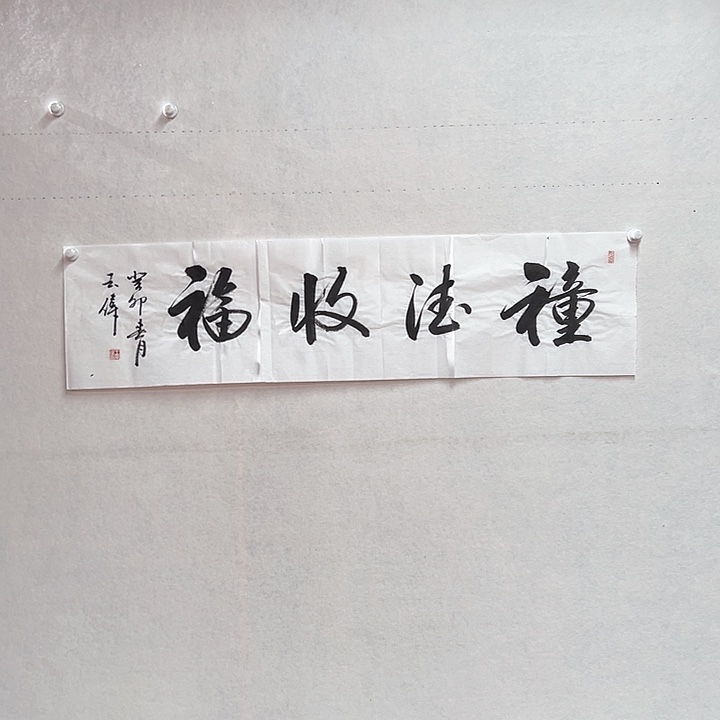 種德收福
癸卯春月
玉偉